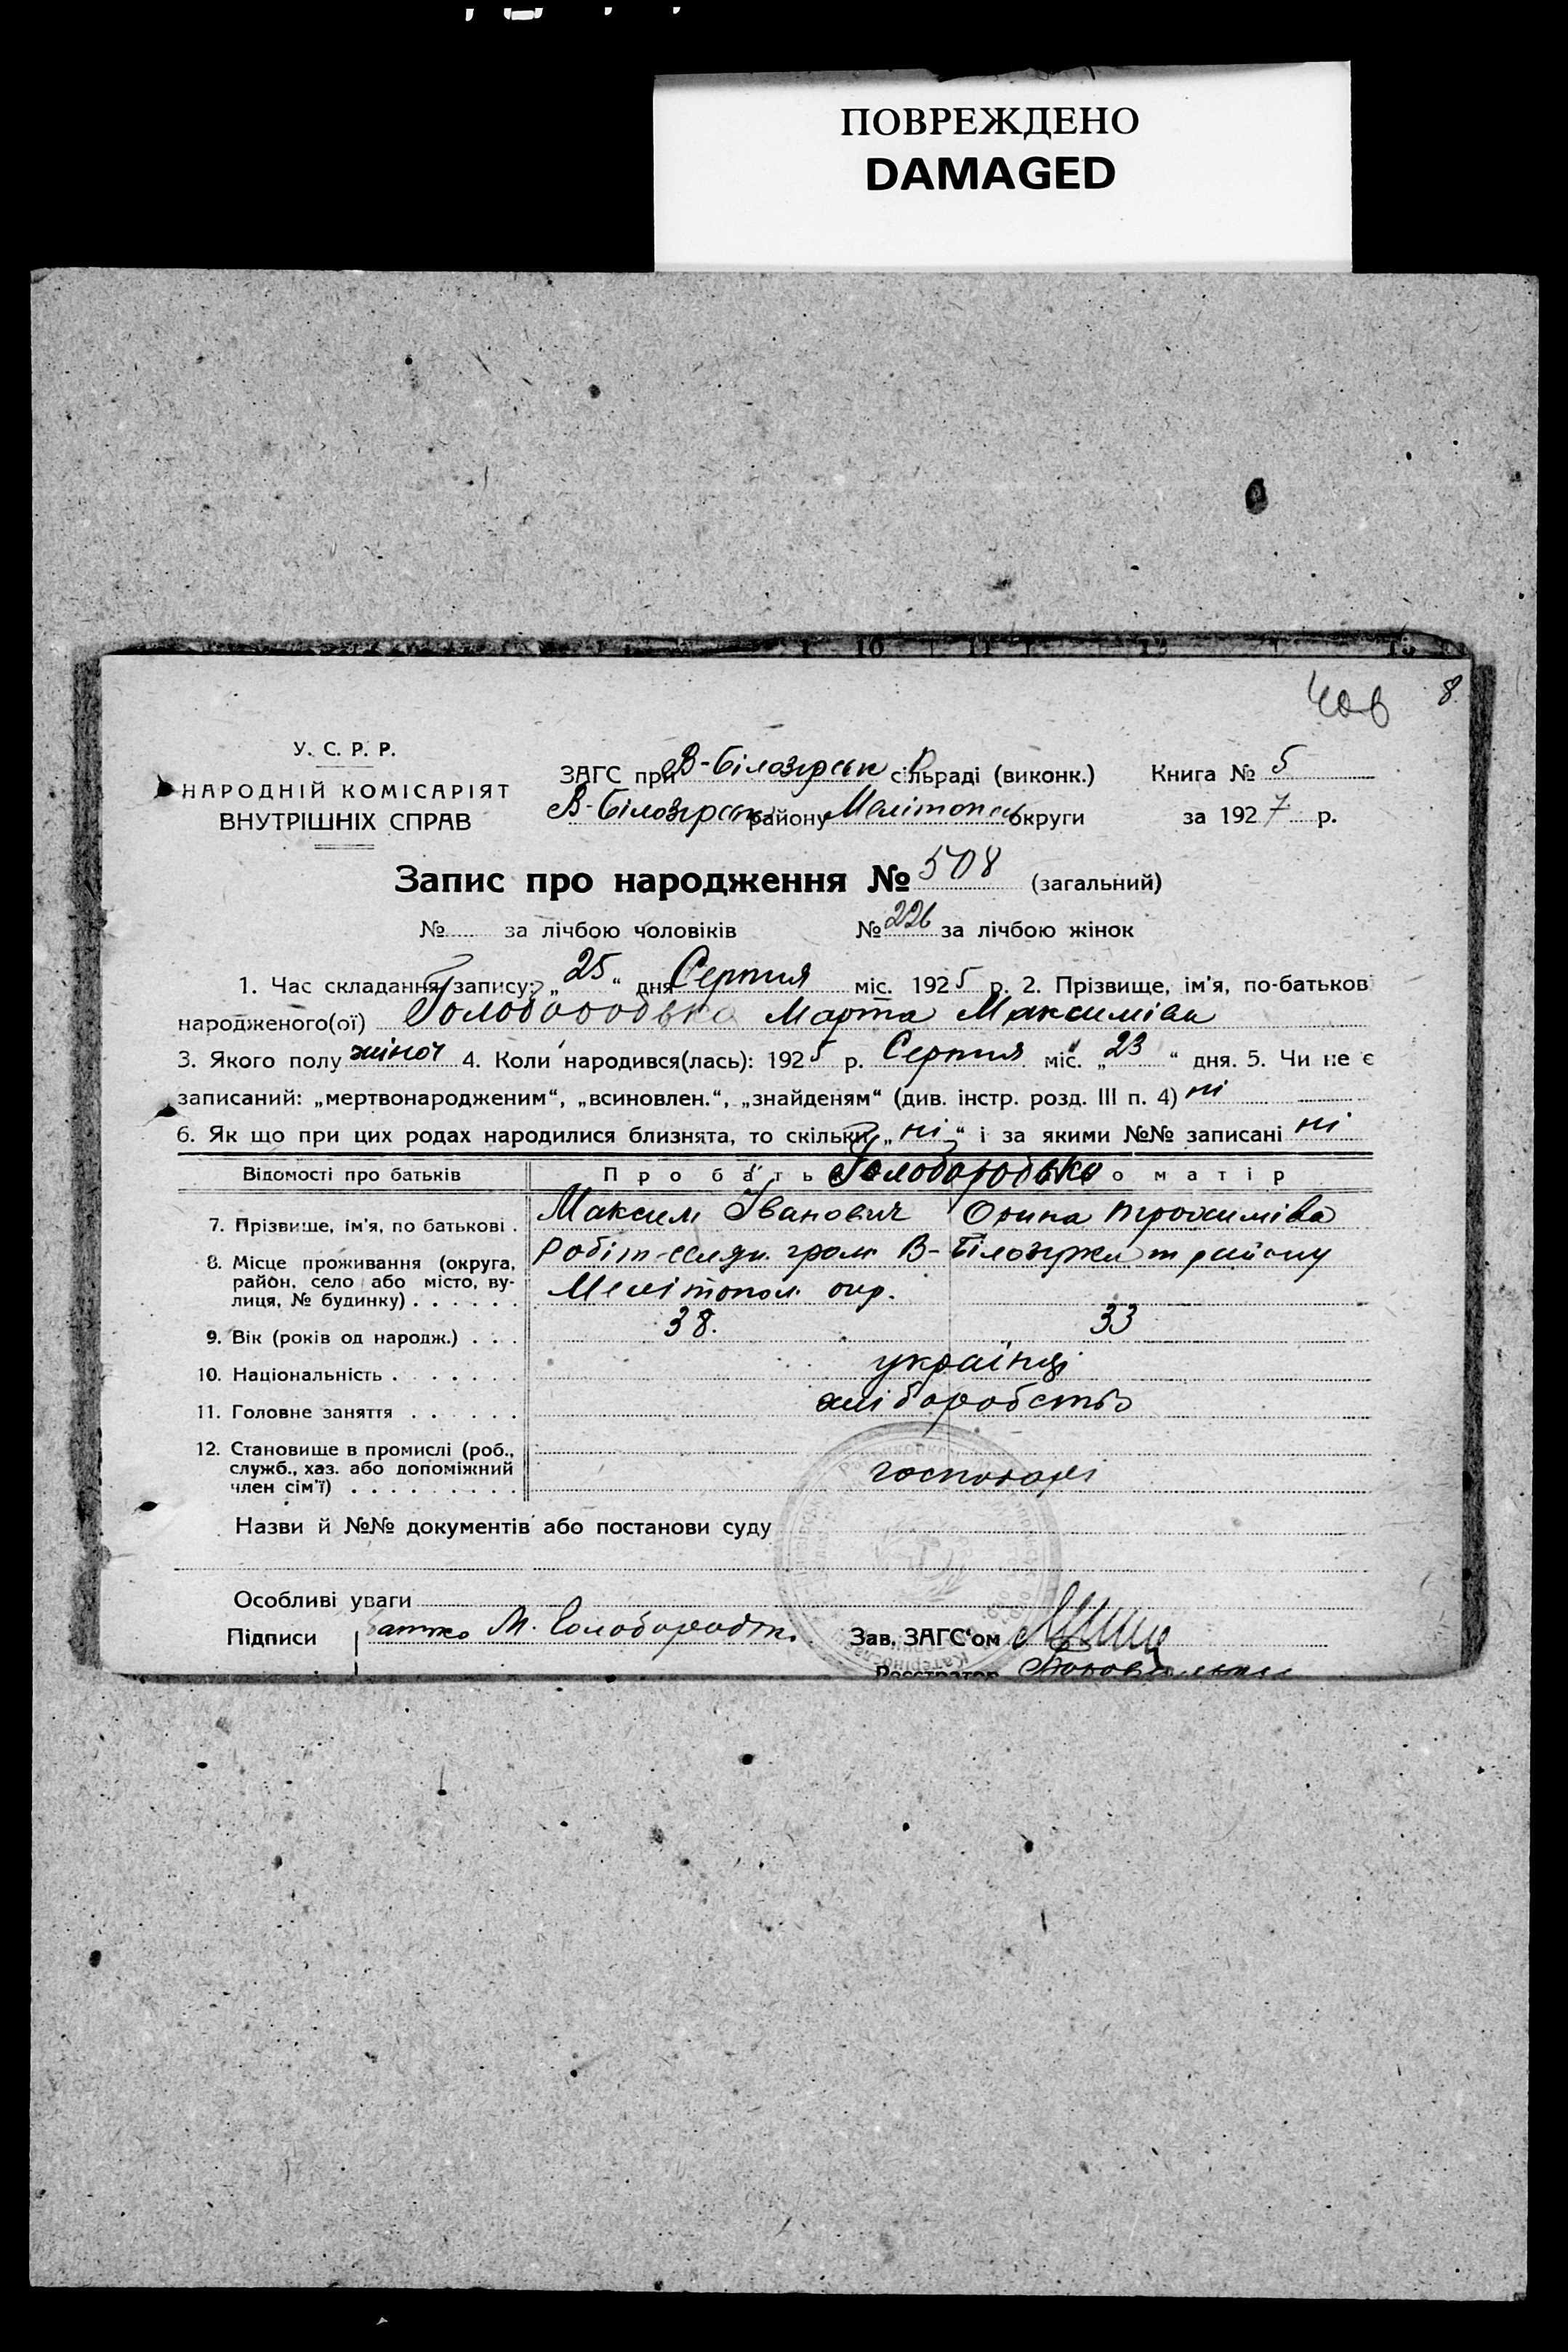 ПОВРЕЖДЕНО
DAMAGED
8
У. С. Р. Р.
НАРОДНІЙ КОМІСАРІЯТ
ВНУТРІШНІХ СПРАВ
ЗАГС при В-Білозірськ сільраді (виконк.)
В-Білозірськ району Мелітопель округи
Книга № 5
за 1927 р.
Запис про народження № 508 (загальний)
№ за лічбою чоловіків № 226 за лічбою жінок
1. Час складання запису: „25“ дня Серпня міс. 1925 р. 2. Прізвище, ім'я, по-батьков
народженого(ої) Голобородько Марта Максимівн
3. Якого полу жіноч 4. Коли народився(лась): 1925 р. Серпня міс. „23“ дня. 5. Чи не є
записаний: „мертвонародженим“, „всиновлен.“, „знайденям“ (див. інстр. розд. III п. 4) ні
6. Як що при цих родах народилися близнята, то скільки „ні“ і за якими №№ записані ні
Відомості про батьків Про батька Голобородько о матір
7. Прізвище, ім'я, по батькові . Максим Іванович Орина Трохимівна
8. Місце проживання (округа, район, село або місто, вулиця, № будинку) . . . . . . Робіт-селян. гром. В-Білозірка т району
Мелітопол. окр.
9. Вік (років од народж.) . . . 38. 33
10. Національність . . . . . . . українці
11. Головне заняття . . . . . . хліборобство
12. Становище в промислі (роб., служб., хаз. або допоміжний член сім'ї) . . . . . . . . . господарі
Назви й №№ документів або постанови суду
Особливі уваги
Підписи Батько М. Голобородько. Зав. ЗАГС'ом
Реєстратор